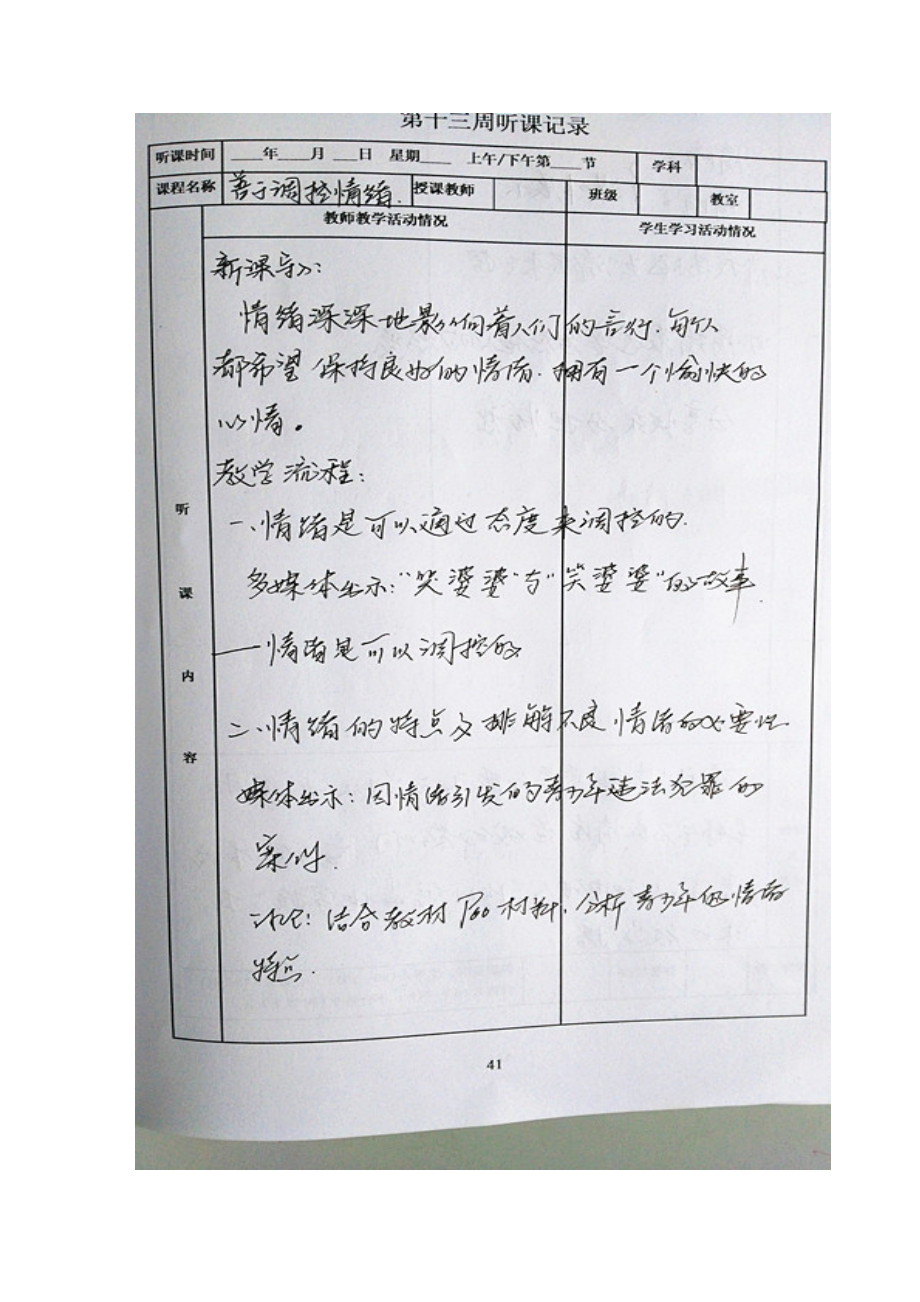 第十三周听课记录
听课时间 ___年___月___日 星期___ 上午/下午第___节 学科
课程名称 善于调控情绪. 授课教师 班级 教室
教师教学活动情况 学生学习活动情况
听课内容
新课导入:
情绪深深地影响着人们的言行.每个人
都希望保持良好的情绪.拥有一个愉快的
心情。
教学流程:
一、情绪是可以通过态度来调控的.
多媒体出示:“哭婆婆”与“笑婆婆”的故事.
——情绪是可以调控的
二、情绪的特点及排解不良情绪的必要性.
媒体出示:因情绪引发的青少年违法犯罪的
案例.
讨论:结合教材P60材料.分析青少年的情绪
特点.
41